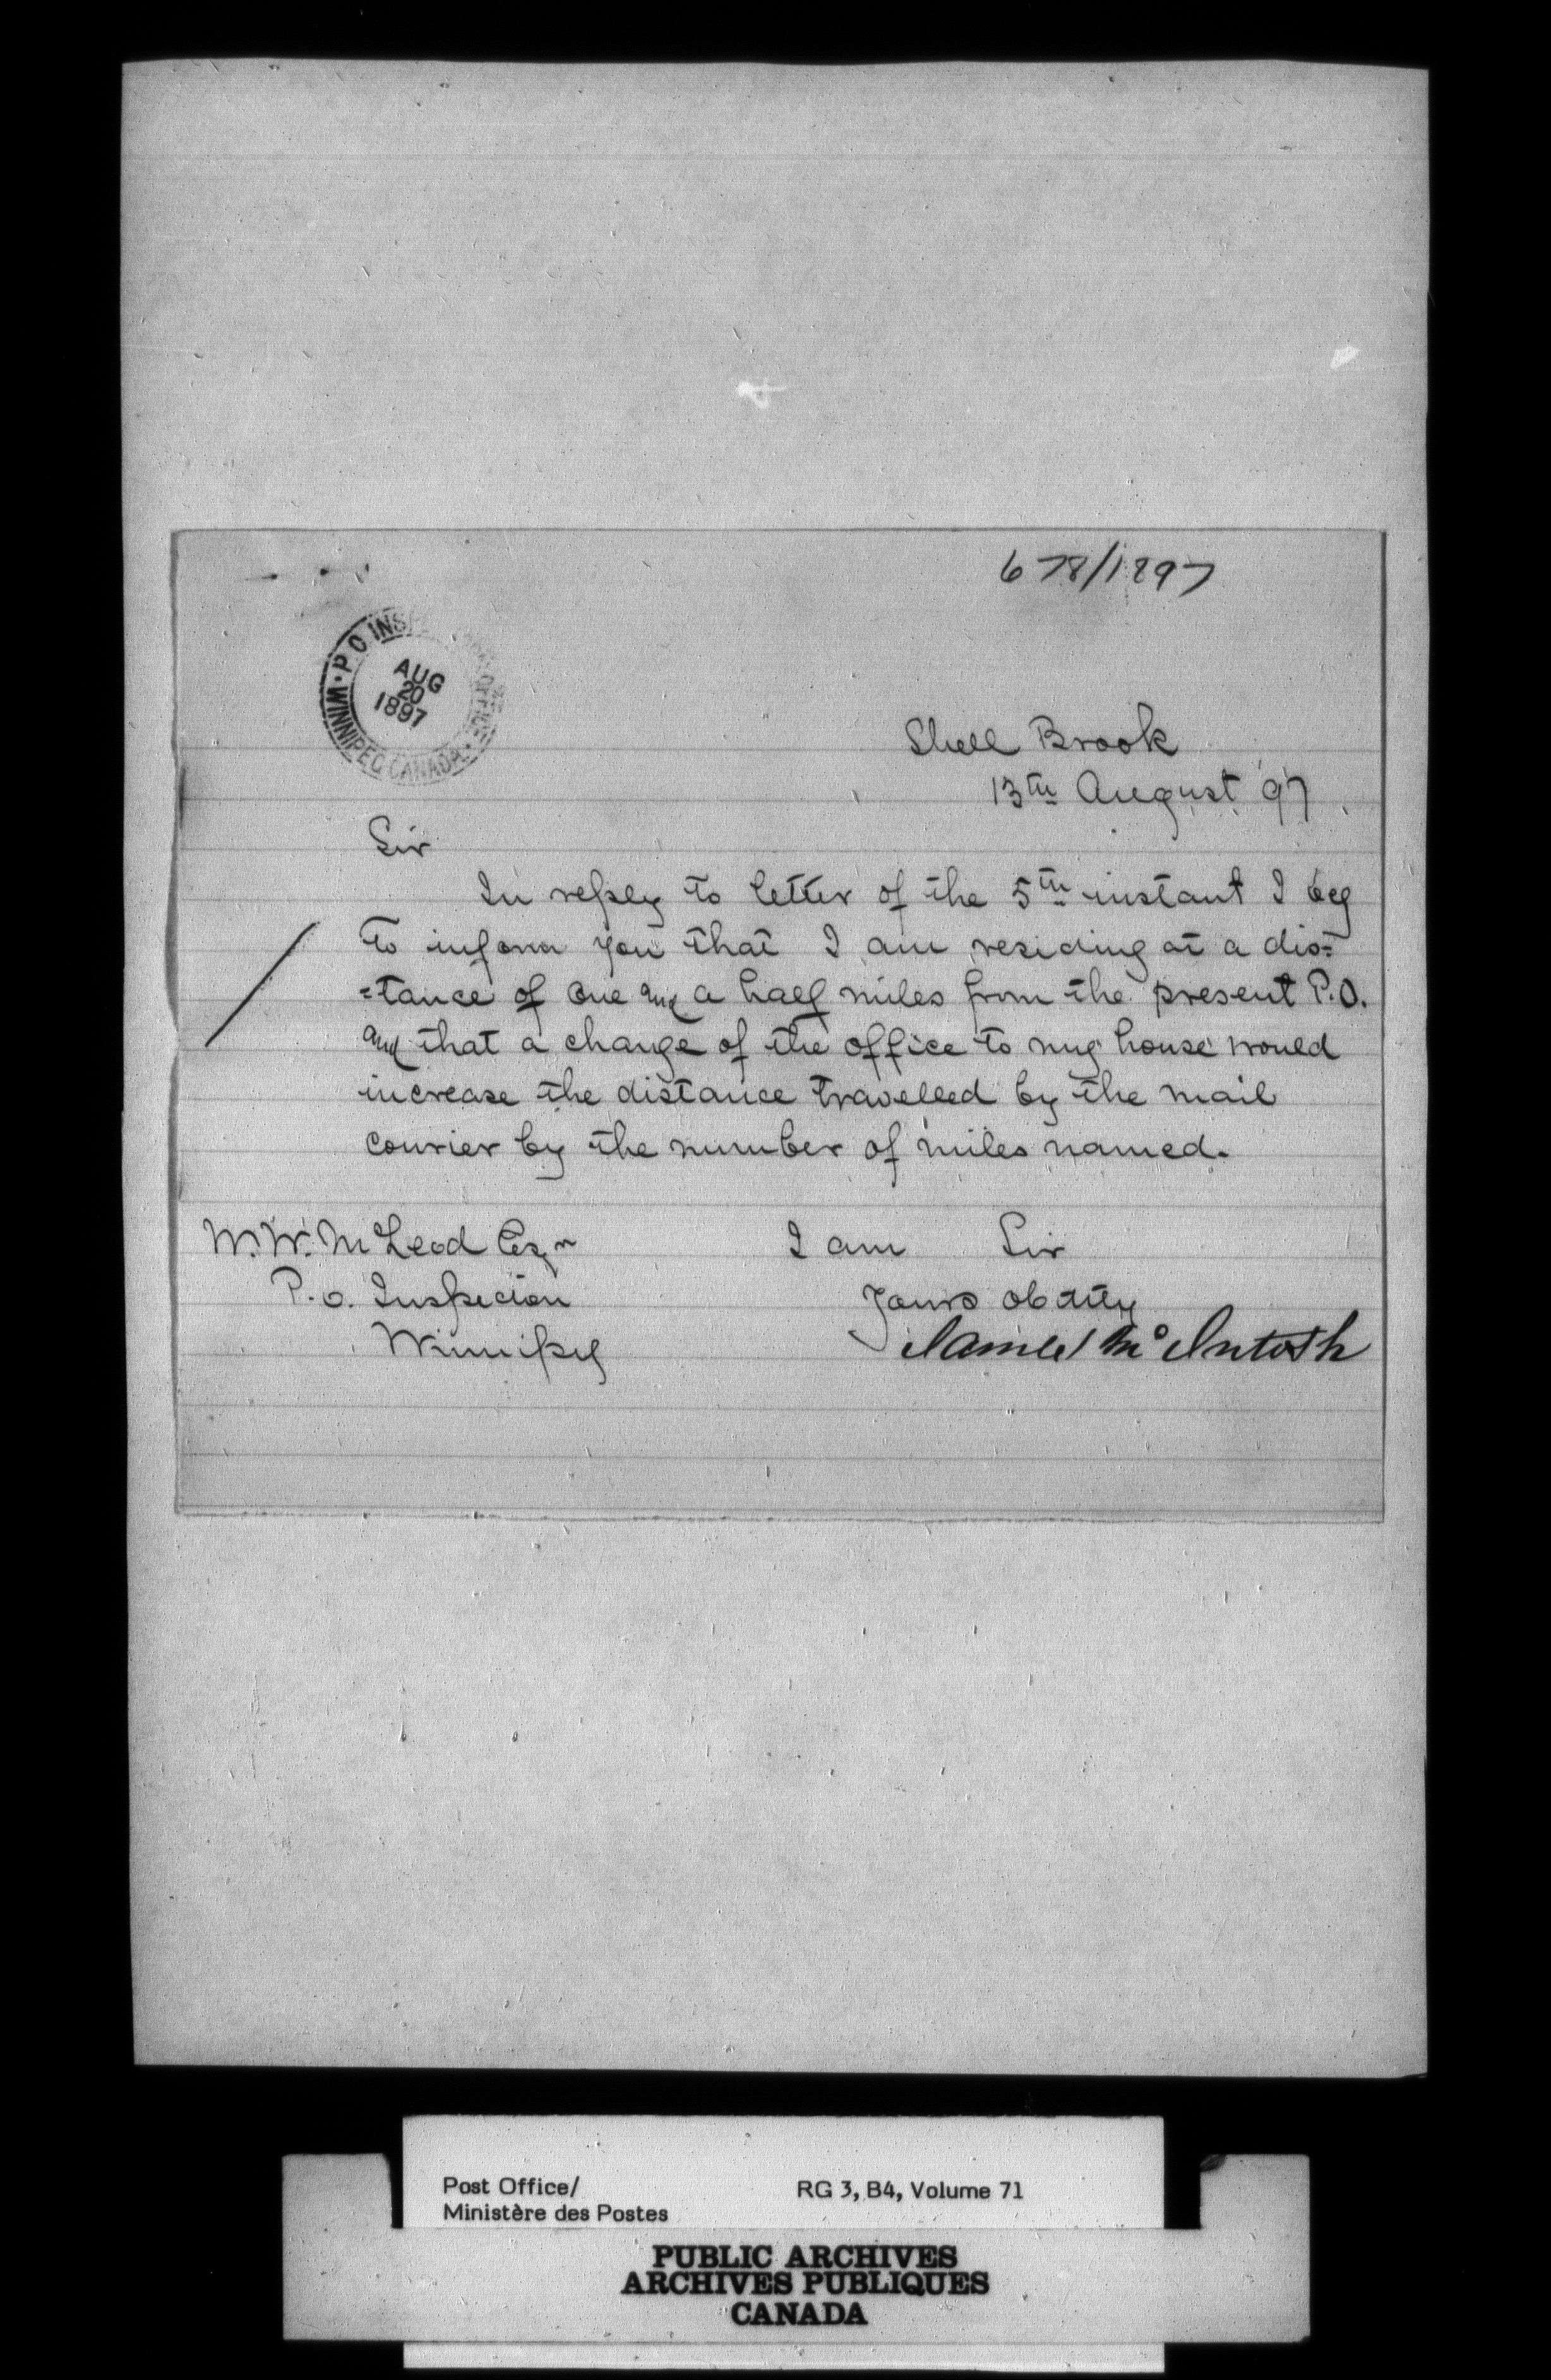 678/1897
P O INS OFFICE
AUG
20
1897
WINNIPEG CANADA
Shell Brook
13th August '97
Sir
In reply to letter of the 5th instant I beg
to inform you that I am residing at a dis=
=tance of one and a half miles from the present P.O.
and that a change of the office to my house would
increase the distance travelled by the mail
courier by the number of miles named.
W.W. McLeod Esqr I am Sir
P.O. Inspector Yours obdtly
Winnipeg James McIntosh
Post Office/ RG 3, B4, Volume 71
Ministère des Postes
PUBLIC ARCHIVES
ARCHIVES PUBLIQUES
CANADA